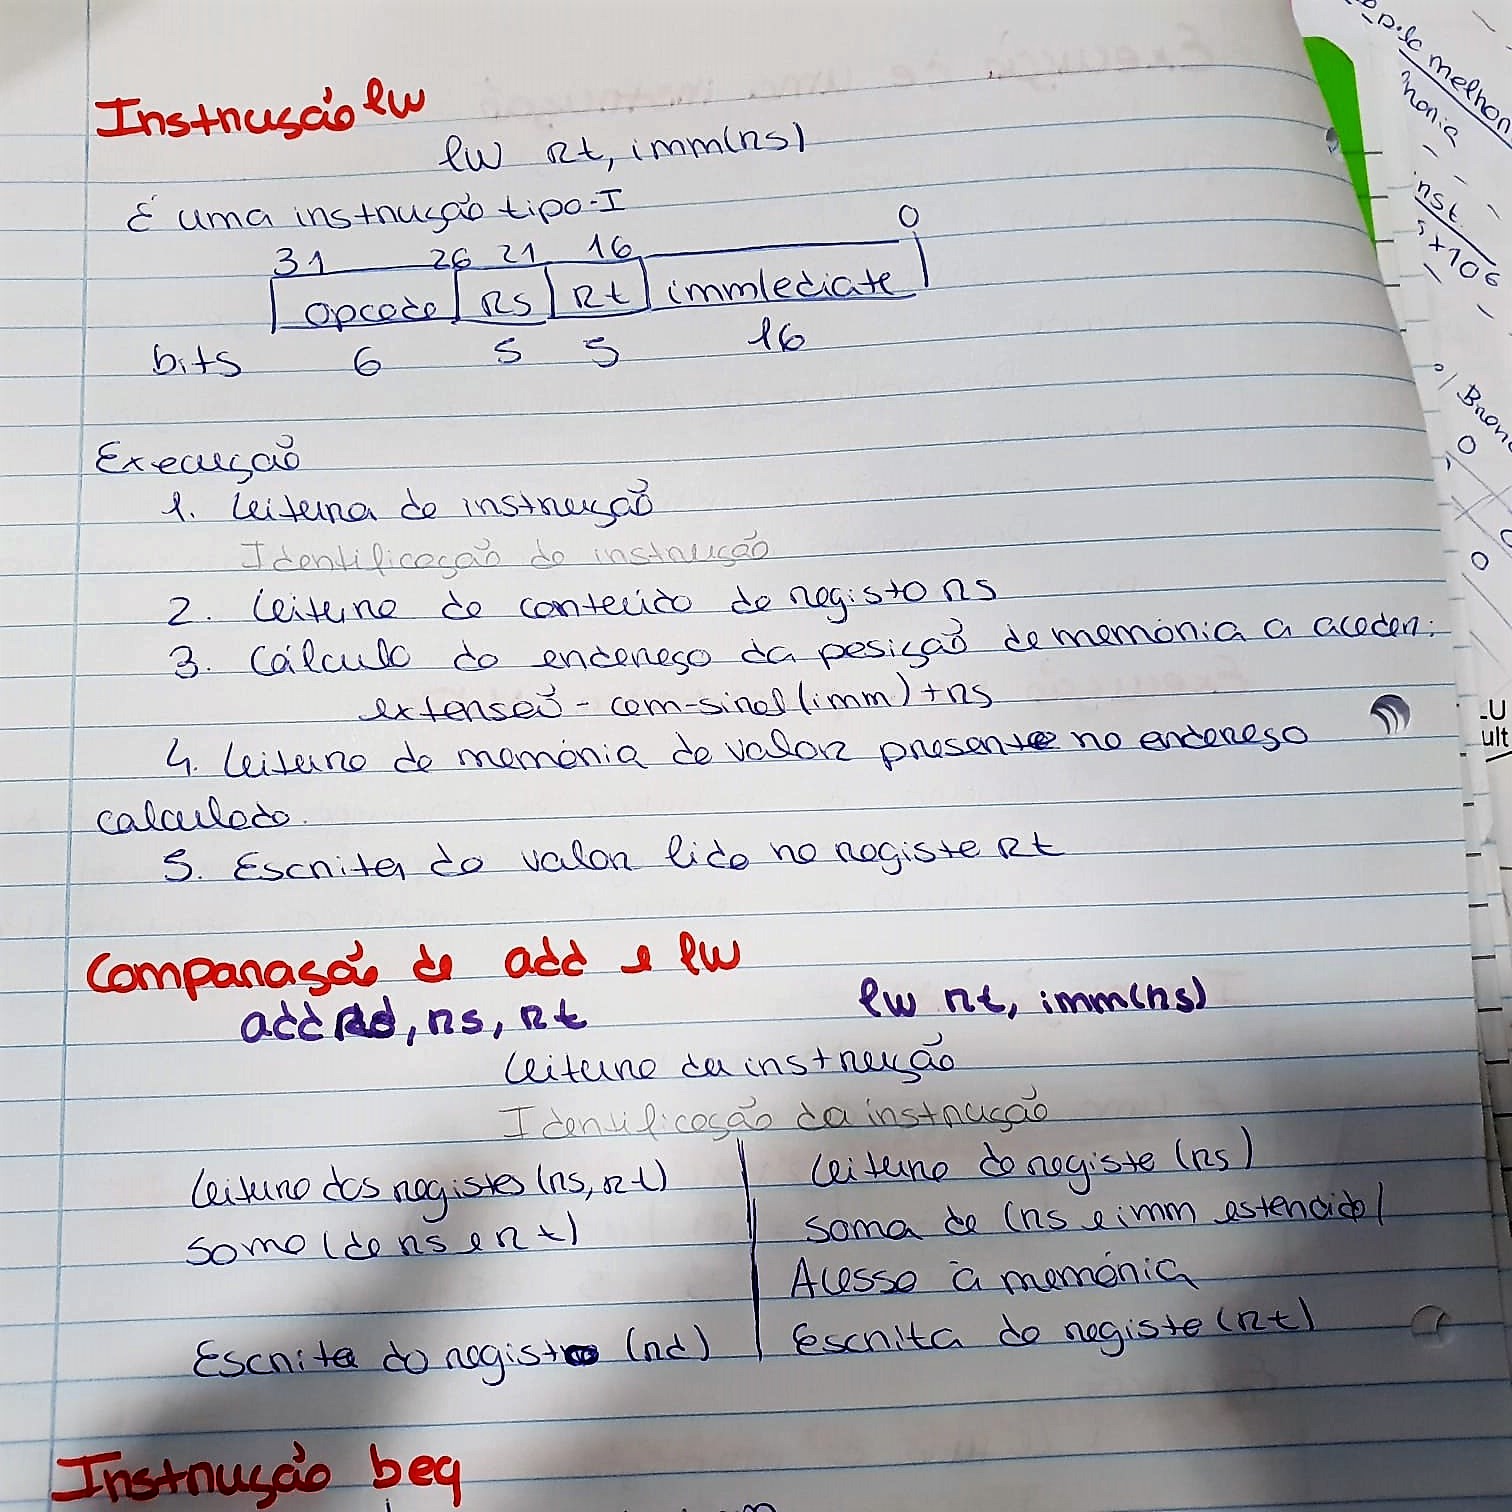 Instrução lw
lw rt, imm(rs)
É uma instrução tipo-I
31 26 21 16 0
opcode rs rt immediate
bits 6 5 5 16
Execução
1. Leitura da instrução
Identificação da instrução
2. Leitura do conteúdo do registo rs
3. Cálculo do endereço da posição de memória a aceder:
extensão-com-sinal(imm)+rs
4. Leitura da memória do valor presente no endereço
calculado.
5. Escrita do valor lido no registo rt
Comparação de add e lw
add rd, rs, rt lw rt, imm(rs)
Leitura da instrução
Identificação da instrução
Leitura dos registos (rs, rt) Leitura do registo (rs)
Soma (de rs e rt) Soma de (rs e imm estendido)
Acesso à memória
Escrita do registo (rd) Escrita do registo (rt)
Instrução beq
melhor
mória
inst.
LU
ult